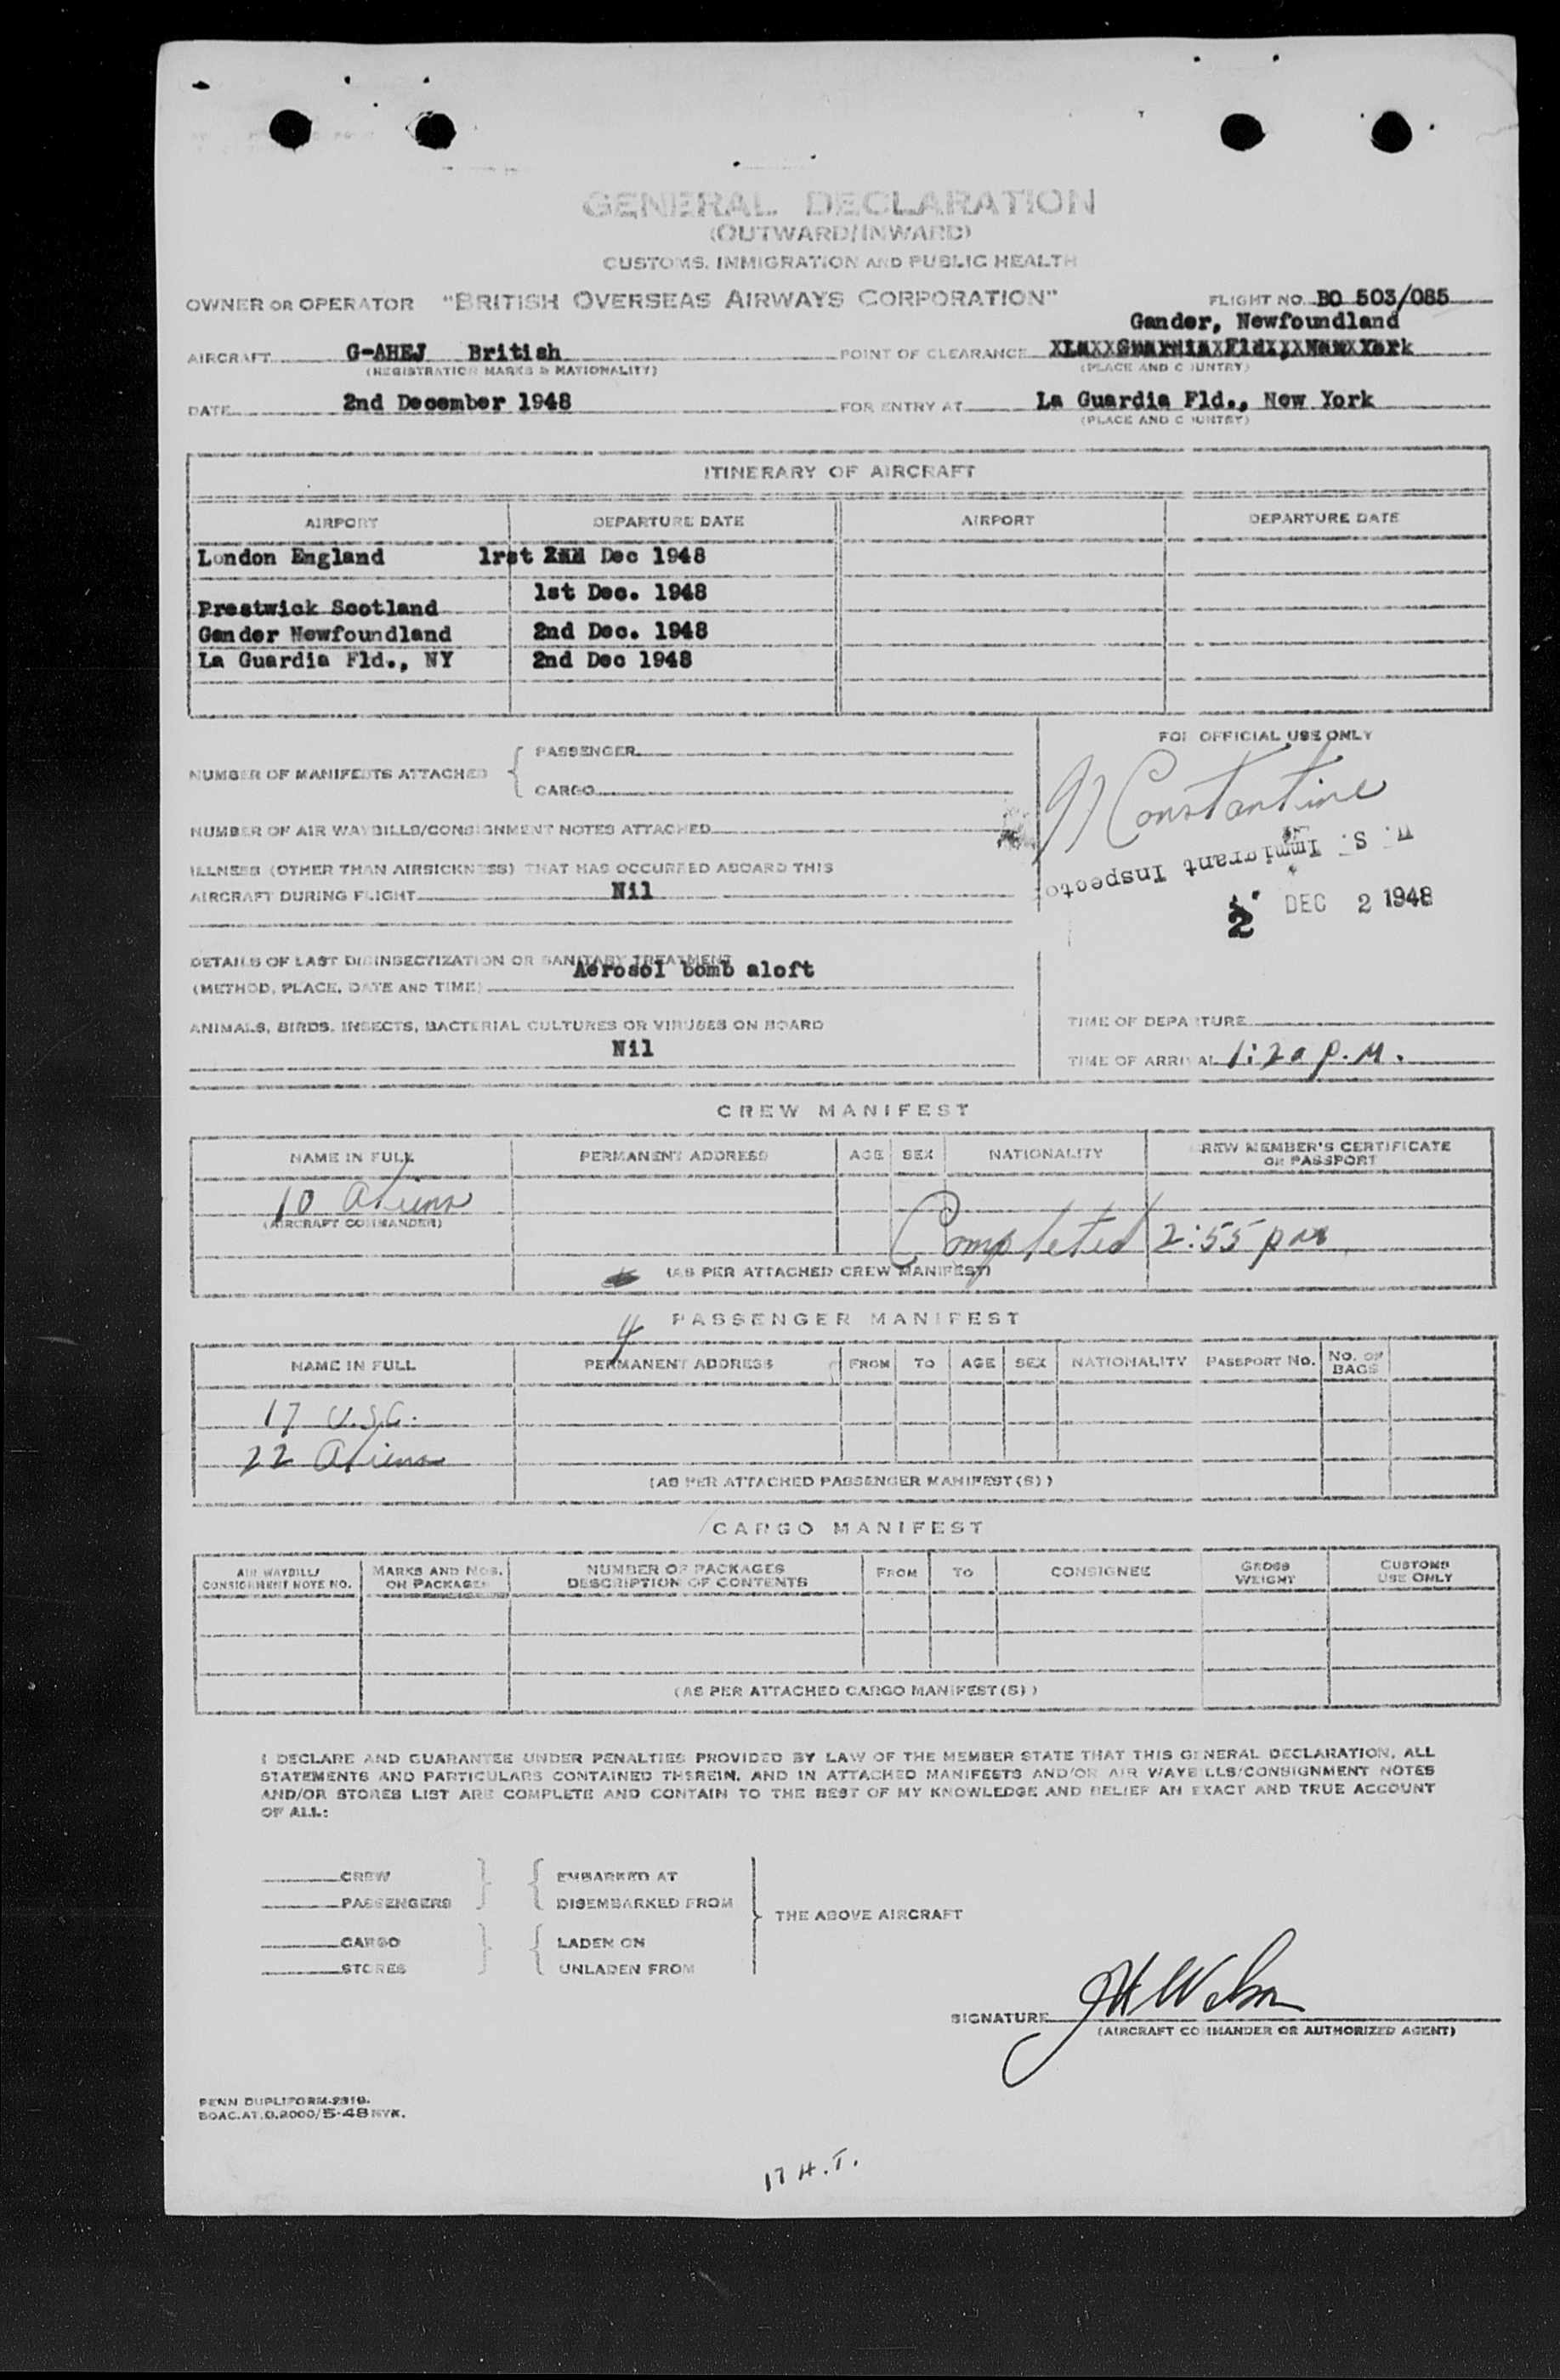 GENERAL DECLARATION
(OUTWARD/INWARD)
CUSTOMS, IMMIGRATION AND PUBLIC HEALTH
OWNER OR OPERATOR "BRITISH OVERSEAS AIRWAYS CORPORATION" FLIGHT NO. BO 503/085
Gander, Newfoundland
AIRCRAFT G-AHEJ British POINT OF CLEARANCE XLaXXGuardiaXFldX,XNewXYork
(REGISTRATION MARKS & NATIONALITY) (PLACE AND COUNTRY)
DATE 2nd December 1948 FOR ENTRY AT La Guardia Fld., New York
(PLACE AND COUNTRY)
ITINERARY OF AIRCRAFT
AIRPORT DEPARTURE DATE AIRPORT DEPARTURE DATE
London England 1rst Dec 1948
Prestwick Scotland 1st Dec. 1948
Gander Newfoundland 2nd Dec. 1948
La Guardia Fld., NY 2nd Dec 1948
FOR OFFICIAL USE ONLY
NUMBER OF MANIFESTS ATTACHED { PASSENGER
CARGO
Constantine
NUMBER OF AIR WAYBILLS/CONSIGNMENT NOTES ATTACHED
U. S. Immigrant Inspector
ILLNESS (OTHER THAN AIRSICKNESS) THAT HAS OCCURRED ABOARD THIS
AIRCRAFT DURING FLIGHT Nil
2 DEC 2 1948
DETAILS OF LAST DISINSECTIZATION OR SANITARY TREATMENT
Aerosol bomb aloft
(METHOD, PLACE, DATE AND TIME)
ANIMALS, BIRDS, INSECTS, BACTERIAL CULTURES OR VIRUSES ON BOARD
Nil
TIME OF DEPARTURE
TIME OF ARRIVAL 1:20 P.M.
CREW MANIFEST
NAME IN FULL PERMANENT ADDRESS AGE SEX NATIONALITY CREW MEMBER'S CERTIFICATE OR PASSPORT
10 Aliens
(AIRCRAFT COMMANDER)
Completed 2:55 pm
(AS PER ATTACHED CREW MANIFEST)
4 PASSENGER MANIFEST
NAME IN FULL PERMANENT ADDRESS FROM TO AGE SEX NATIONALITY PASSPORT NO. NO. OF BAGS
17 U.S.C.
22 Aliens
(AS PER ATTACHED PASSENGER MANIFEST(S))
CARGO MANIFEST
AIR WAYBILL/ CONSIGNMENT NOTE NO. MARKS AND NOS. ON PACKAGES NUMBER OF PACKAGES DESCRIPTION OF CONTENTS FROM TO CONSIGNEE GROSS WEIGHT CUSTOMS USE ONLY
(AS PER ATTACHED CARGO MANIFEST(S))
I DECLARE AND GUARANTEE UNDER PENALTIES PROVIDED BY LAW OF THE MEMBER STATE THAT THIS GENERAL DECLARATION, ALL
STATEMENTS AND PARTICULARS CONTAINED THEREIN, AND IN ATTACHED MANIFESTS AND/OR AIR WAYBILLS/CONSIGNMENT NOTES
AND/OR STORES LIST ARE COMPLETE AND CONTAIN TO THE BEST OF MY KNOWLEDGE AND BELIEF AN EXACT AND TRUE ACCOUNT
OF ALL:
CREW } { EMBARKED AT
PASSENGERS DISEMBARKED FROM
} THE ABOVE AIRCRAFT
CARGO } { LADEN ON
STORES UNLADEN FROM
SIGNATURE
(AIRCRAFT COMMANDER OR AUTHORIZED AGENT)
PENN DUPLIFORM-2919.
BOAC.AT.O.2000/5-48 NYK.
17 H.T.